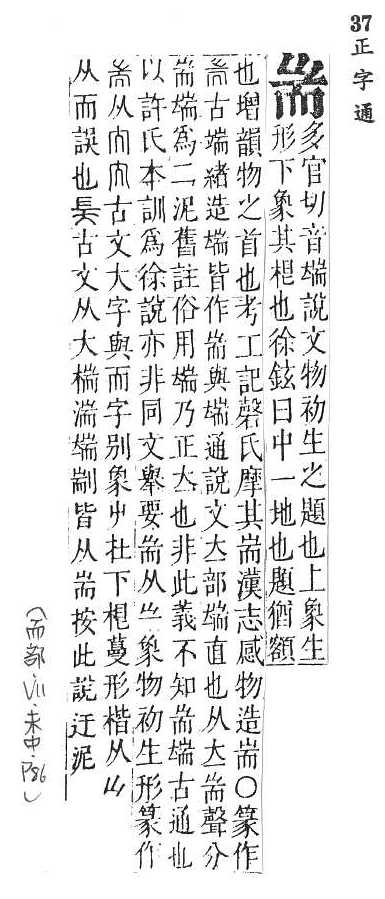 37 正字通
耑
多官切音端說文物初生之題也上象生
形下象其根也徐鉉曰中一地也題猶額
也增韻物之首也考工記磬氏摩其耑漢志感物造耑○篆作
耑古端緒造端皆作耑與端通說文立部端直也从立耑聲分
耑端爲二泥舊註俗用端乃正立也非此義不知耑端古通也
以許氏本訓爲徐說亦非同文舉要耑从象物初生形篆作
耑从古文大字與而字別象屮在下根蔓形楷从山
从而誤也古文从大椯湍端剬皆从耑按此說迂泥
(而部·VII·未中·P86)